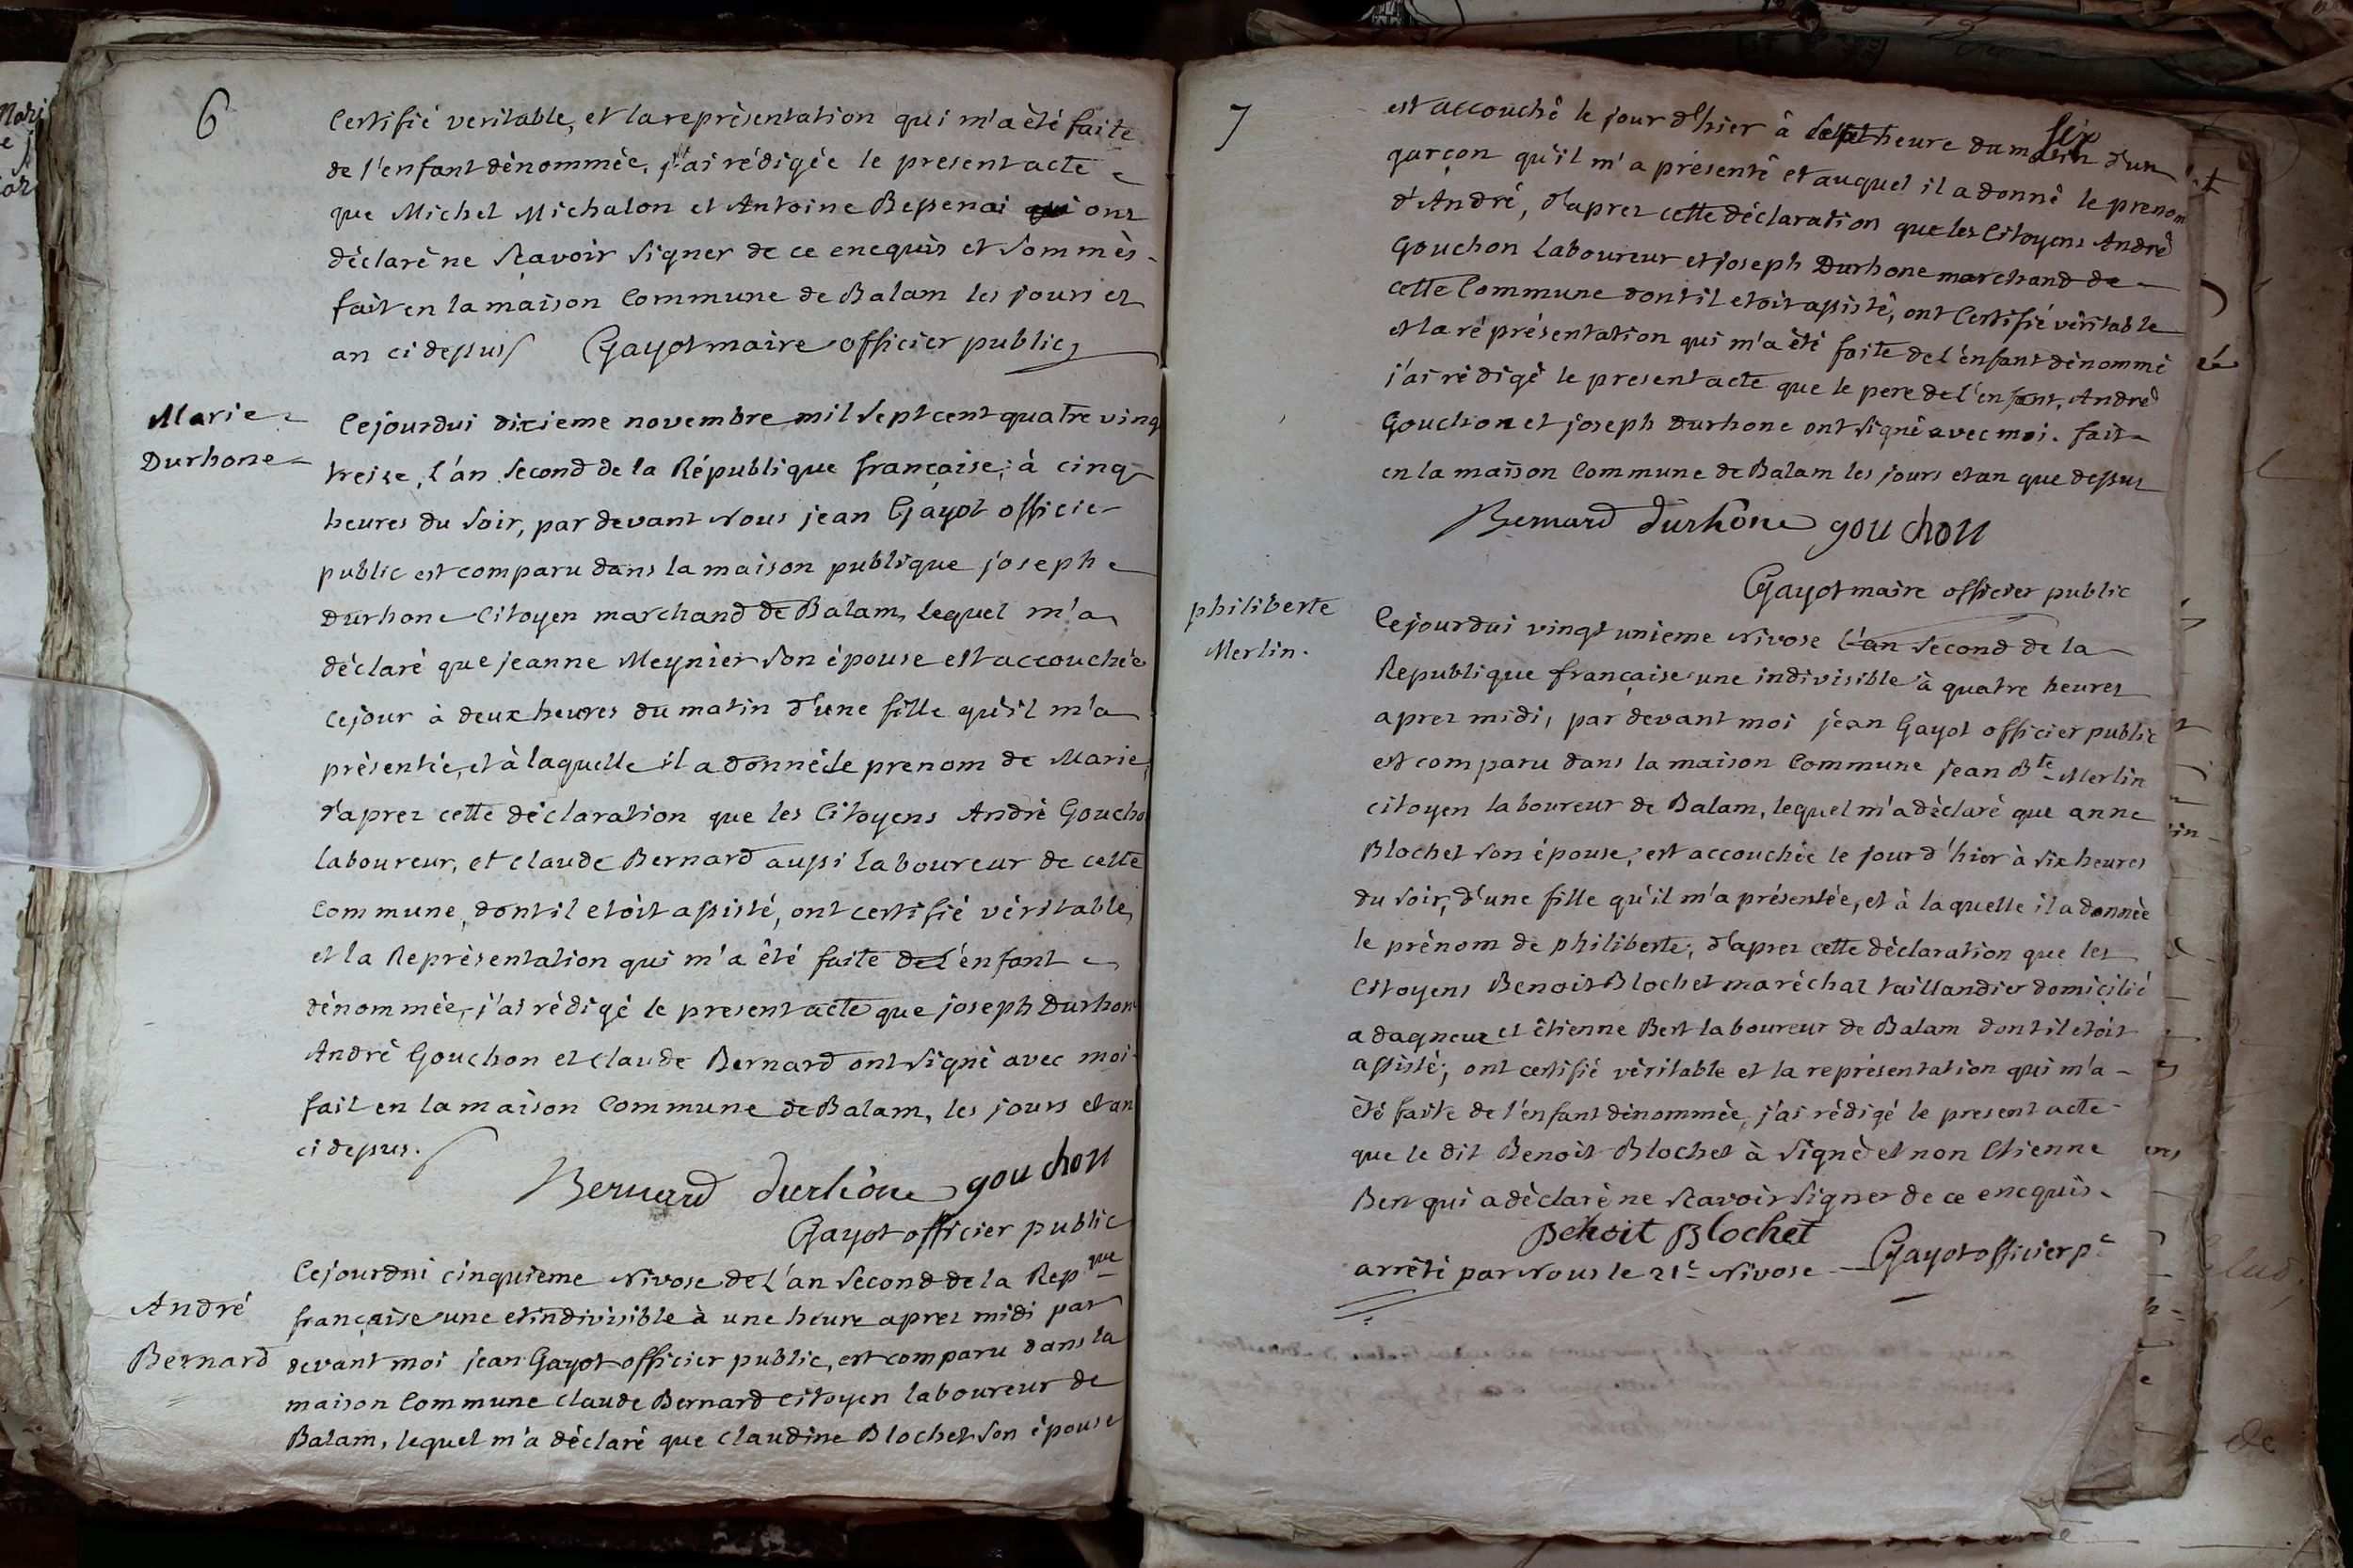 6
Certifié veritable, et la représentation qui m'a été faite
de l'enfant dénommée, j'ai rédigée le present acte
que Michel Michalon et Antoine Bessenai qui ont
déclaré ne Sçavoir Signer de ce enequis et Sommès
fait en la maison Commune de Balam les jours et
an ci dessus Gayot maire officier public
Marie
Durhone
Cejourdui dixieme novembre mil Sept cent quatre ving
treise, l'an Second de la République française, à cinq
heures du Soir, par devant Nous jean Gayot officier
public est comparu dans la maison publique joseph
Durhone Citoyen marchand de Balam, Lequel m'a
déclaré que jeanne Meynier Son épouse est accouchée
cejour à deux heures du matin d'une fille qu'il m'a
présentée, et à laquelle il a donnée le prenom de Marie,
d'aprez cette déclaration que les Citoyens André Goucho
laboureur, et Claude Bernard aussi laboureur de cette
Commune, dont il etoit assisté, ont certifié véritable,
et la Représentation qui m'a été faite de l'enfant
dénommée, j'ai rédigé le present acte que joseph Durhon
André Gouchon et Claude Bernard ont Signé avec moi
fait en la maison Commune de Balam, les jours et an
ci dessus.
Bernard durhône gouchon
Gayot officier public
André
Bernard
Cejourdui cinquieme Nivose de L'an Second de la Repque
française une et indivisible à une heure aprez midi par
devant moi jean Gayot officier public, est comparu dans la
maison Commune Claude Bernard Citoyen laboureur de
Balam, lequel m'a déclaré que Claudine Blochet Son épouse
7
est accouché le jour d'hier à heure du matin d'un
six
garçon qu'il m'a présenté et auquel il a donné le prenom
d'André, d'aprez cette déclaration que les Citoyens André
Gouchon Laboureur et joseph Durhone marchand de
cette Commune dont il etoit assisté, ont Certifié véritable
et la réprésentation qui m'a été faite de l'énfant dénommé
j'ai rédigé le present acte que le pere de l'enfant, André
Gouchon et joseph Durhone ont Signé avec moi. fait
en la maison Commune de Balam les jours et an que dessus
Bernard durhône gouchon
Gayot maire officier public
philiberte
Merlin.
Cejourdui vingt unieme Nivose l'an Second de la
Republique française une indivisible à quatre heures
aprez midi, par devant moi jean Gayot officier public
est comparu dans la maison Commune jean Bte Merlin
citoyen laboureur de Balam, lequel m'a déclaré que anne
Blochet Son épouse, est accouchée le jour d'hier à Six heures
du Soir, d'une fille qu'il m'a présentée, et à laquelle il a donnée
le prénom de philiberte, d'aprez cette déclaration que les
Citoyens Benoit Blochet maréchal taillandier domicilié
a dagneux et étienne Bert laboureur de Balam dont il etoit
assisté; ont certifié véritable et la représentation qui m'a
été faite de l'énfant dénommée, j'ai rédigé le present acte
que le dit Benoit Blochet à Signé et non Etienne
Ben qui a déclaré ne Scavoir Signer de ce enequis.
Benoit Blochet
Gayot officier pc
arrêté par Nous le 21e Nivose